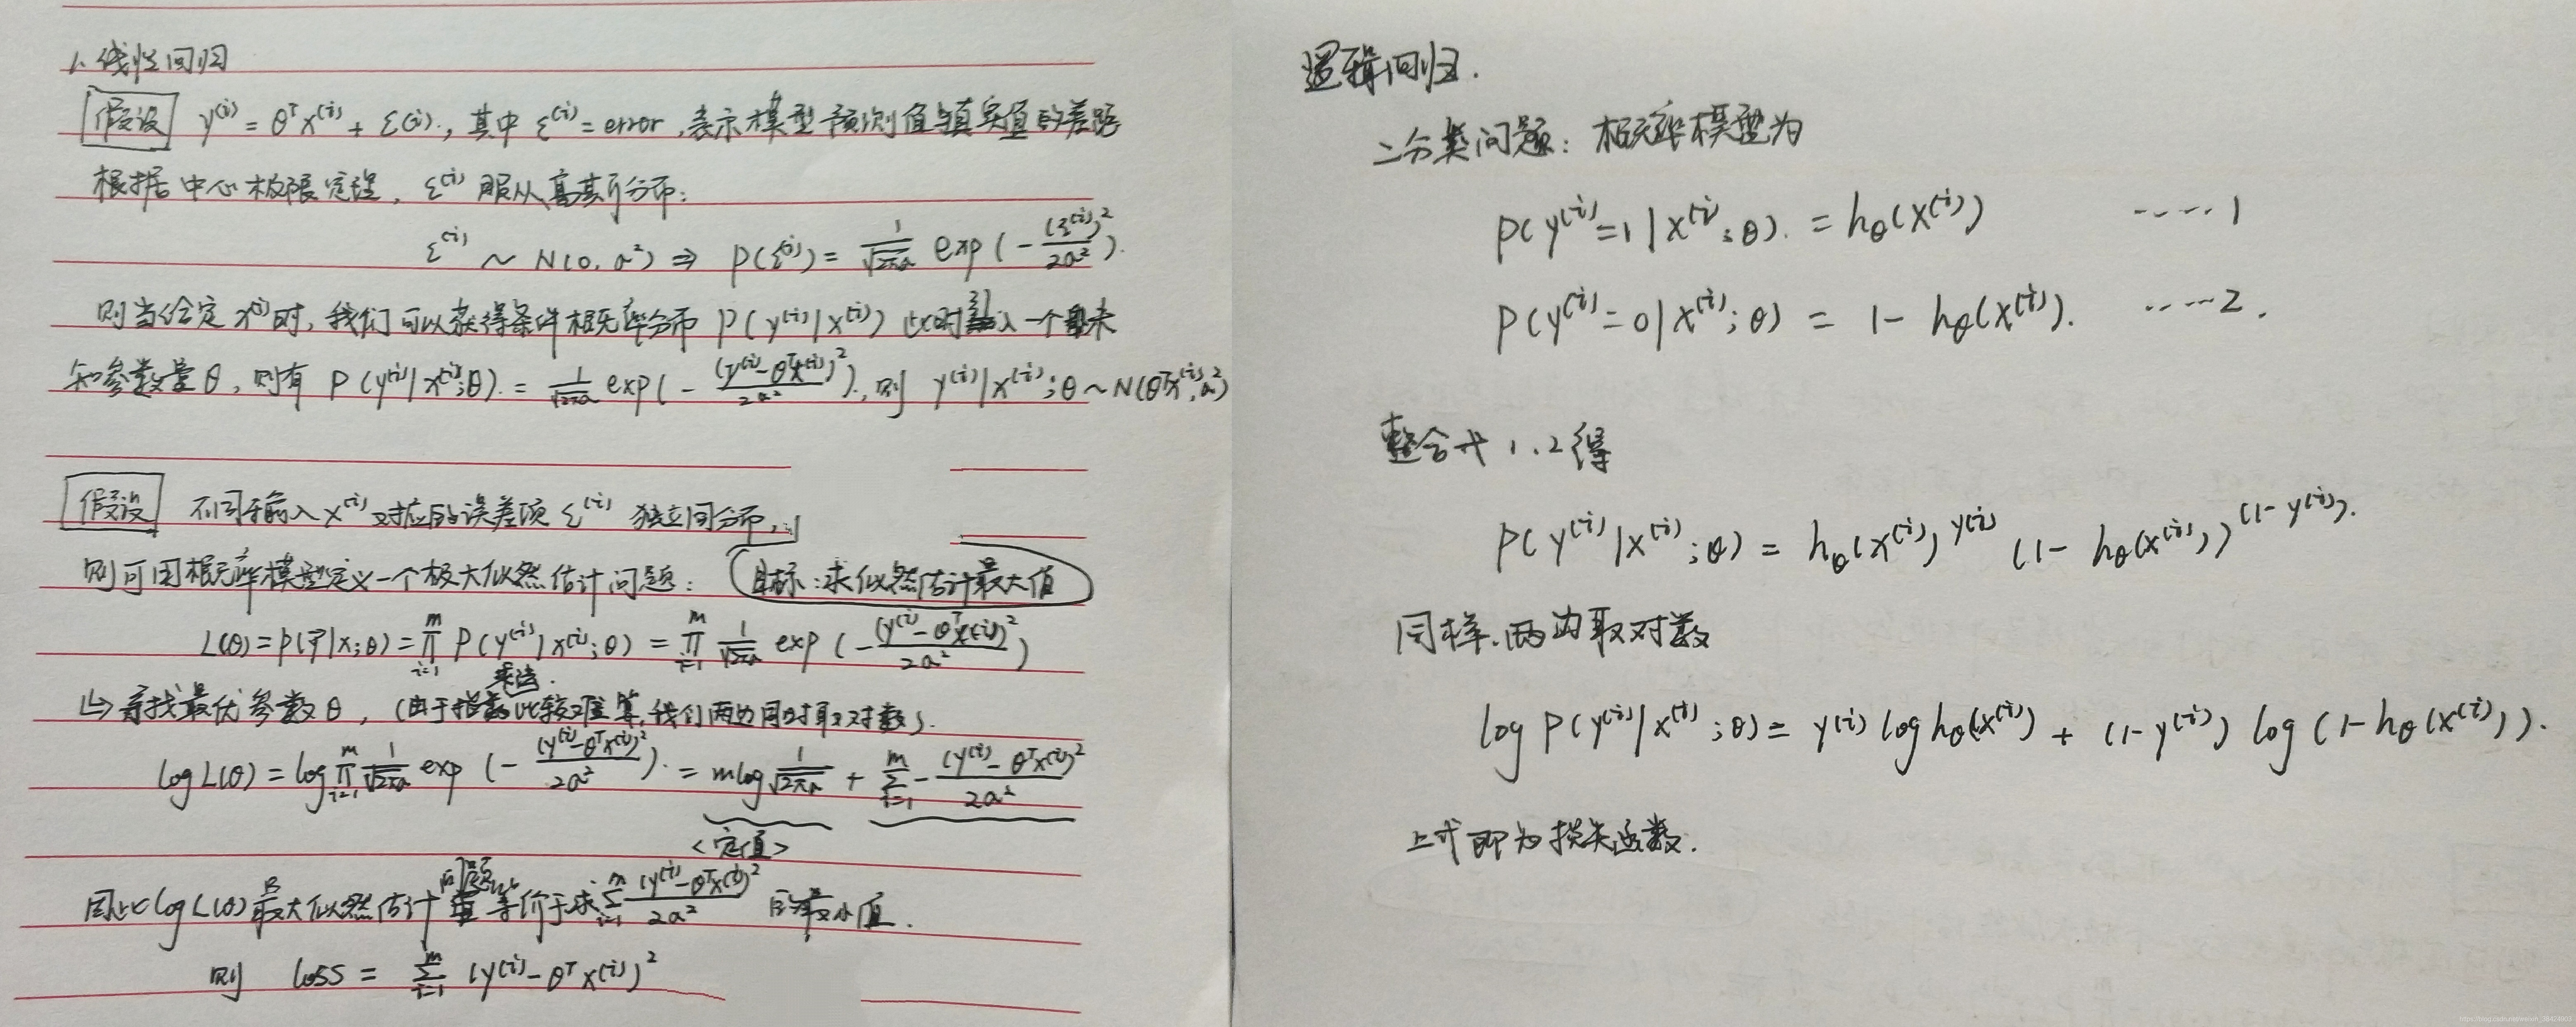 1. 线性回归
假设 y⁽ⁱ⁾ = θᵀx⁽ⁱ⁾ + ε(i)., 其中 ε⁽ⁱ⁾ = error, 表示模型预测值与真实值的差距
根据中心极限定理, ε⁽ⁱ⁾ 服从高斯分布:
ε⁽ⁱ⁾ ~ N(0, σ²) ⇒ p(ε⁽ⁱ⁾) = 1/√2πσ exp(-(ε⁽ⁱ⁾)²/2σ²).
则当给定 x⁽ⁱ⁾ 时, 我们可以获得条件概率分布 p(y⁽ⁱ⁾|x⁽ⁱ⁾) 此时引入一个未
知参数量 θ, 则有 P(y⁽ⁱ⁾|x⁽ⁱ⁾;θ). = 1/√2πσ exp(-(y⁽ⁱ⁾-θᵀx⁽ⁱ⁾)²/2σ²)., 则 y⁽ⁱ⁾|x⁽ⁱ⁾;θ ~ N(θᵀx⁽ⁱ⁾, σ²)
假设 不同输入 x⁽ⁱ⁾ 对应的误差项 ε⁽ⁱ⁾ 独立同分布,
则可用概率模型定义一个极大似然估计问题: 目标:求似然估计最大值
L(θ) = p(y⃗|x;θ) = ∏ᵢ₌₁ᵐ P(y⁽ⁱ⁾|x⁽ⁱ⁾;θ) = ∏ᵢ₌₁ᵐ 1/√2πσ exp(-(y⁽ⁱ⁾-θᵀx⁽ⁱ⁾)²/2σ²)
乘法.
↳ 寻找最优参数 θ, (由于指数比较难算, 我们两边同时取对数).
log L(θ) = log ∏ᵢ₌₁ᵐ 1/√2πσ exp(-(y⁽ⁱ⁾-θᵀx⁽ⁱ⁾)²/2σ²). = m log 1/√2πσ + ∑ᵢ₌₁ᵐ -(y⁽ⁱ⁾-θᵀx⁽ⁱ⁾)²/2σ²
<定值>
因此 log L(θ) 的最大似然估计问题等价于求 ∑ᵢ₌₁ᵐ (y⁽ⁱ⁾-θᵀx⁽ⁱ⁾)²/2σ² 的最小值.
则 loss = ∑ᵢ₌₁ᵐ (y⁽ⁱ⁾-θᵀx⁽ⁱ⁾)²
逻辑回归.
二分类问题: 概率模型为
P(y⁽ⁱ⁾=1|x⁽ⁱ⁾;θ). = hθ(x⁽ⁱ⁾) ·····1
P(y⁽ⁱ⁾=0|x⁽ⁱ⁾;θ) = 1-hθ(x⁽ⁱ⁾). ·····2.
整合式 1.2 得
P(y⁽ⁱ⁾|x⁽ⁱ⁾;θ) = hθ(x⁽ⁱ⁾)^y⁽ⁱ⁾ (1-hθ(x⁽ⁱ⁾))^(1-y⁽ⁱ⁾).
同样.两边取对数
log P(y⁽ⁱ⁾|x⁽ⁱ⁾;θ) = y⁽ⁱ⁾ log hθ(x⁽ⁱ⁾) + (1-y⁽ⁱ⁾) log(1-hθ(x⁽ⁱ⁾)).
上式即为损失函数.